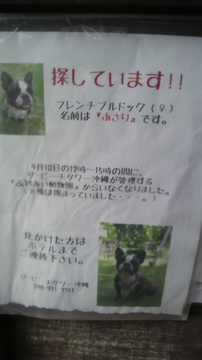 探しています!!
フレンチブルドック(♀)
名前は『あさり』です。
9月10日の12時~15時の間に、
ザ・ビーチタワー沖縄が管理する
『ふれあい動物園』からいなくなりました。
は閉まっていました・・・。)
見かけた方は
ホテルまで
ご連絡下さい。
ザ・ビーチタワー沖縄